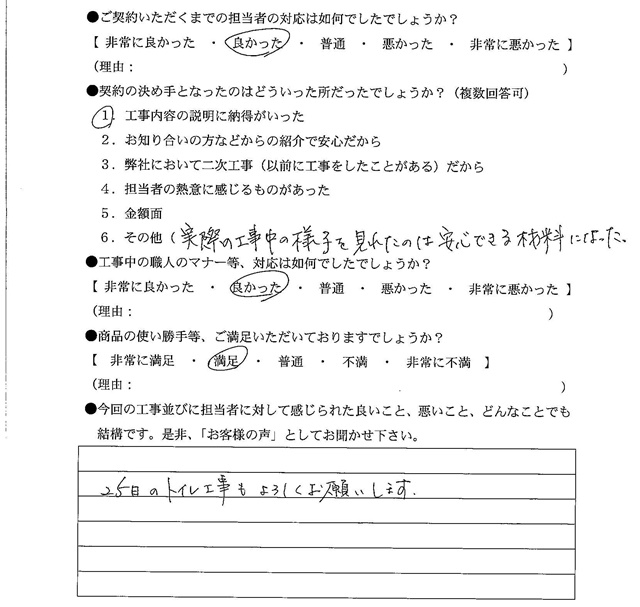 ●ご契約いただくまでの担当者の対応は如何でしたでしょうか？
【 非常に良かった ・ 良かった ・ 普通 ・ 悪かった ・ 非常に悪かった 】
（理由： ）
●契約の決め手となったのはどういった所だったでしょうか？（複数回答可）
1. 工事内容の説明に納得がいった
2. お知り合いの方などからの紹介で安心だから
3. 弊社において二次工事（以前に工事をしたことがある）だから
4. 担当者の熱意に感じるものがあった
5. 金額面
6. その他（実際の工事中の様子を見れたのは安心できる材料になった。
●工事中の職人のマナー等、対応は如何でしたでしょうか？
【 非常に良かった ・ 良かった ・ 普通 ・ 悪かった ・ 非常に悪かった 】
（理由： ）
●商品の使い勝手等、ご満足いただいておりますでしょうか？
【 非常に満足 ・ 満足 ・ 普通 ・ 不満 ・ 非常に不満 】
（理由： ）
●今回の工事並びに担当者に対して感じられた良いこと、悪いこと、どんなことでも
結構です。是非、「お客様の声」としてお聞かせ下さい。
25日のトイレ工事もよろしくお願いします.